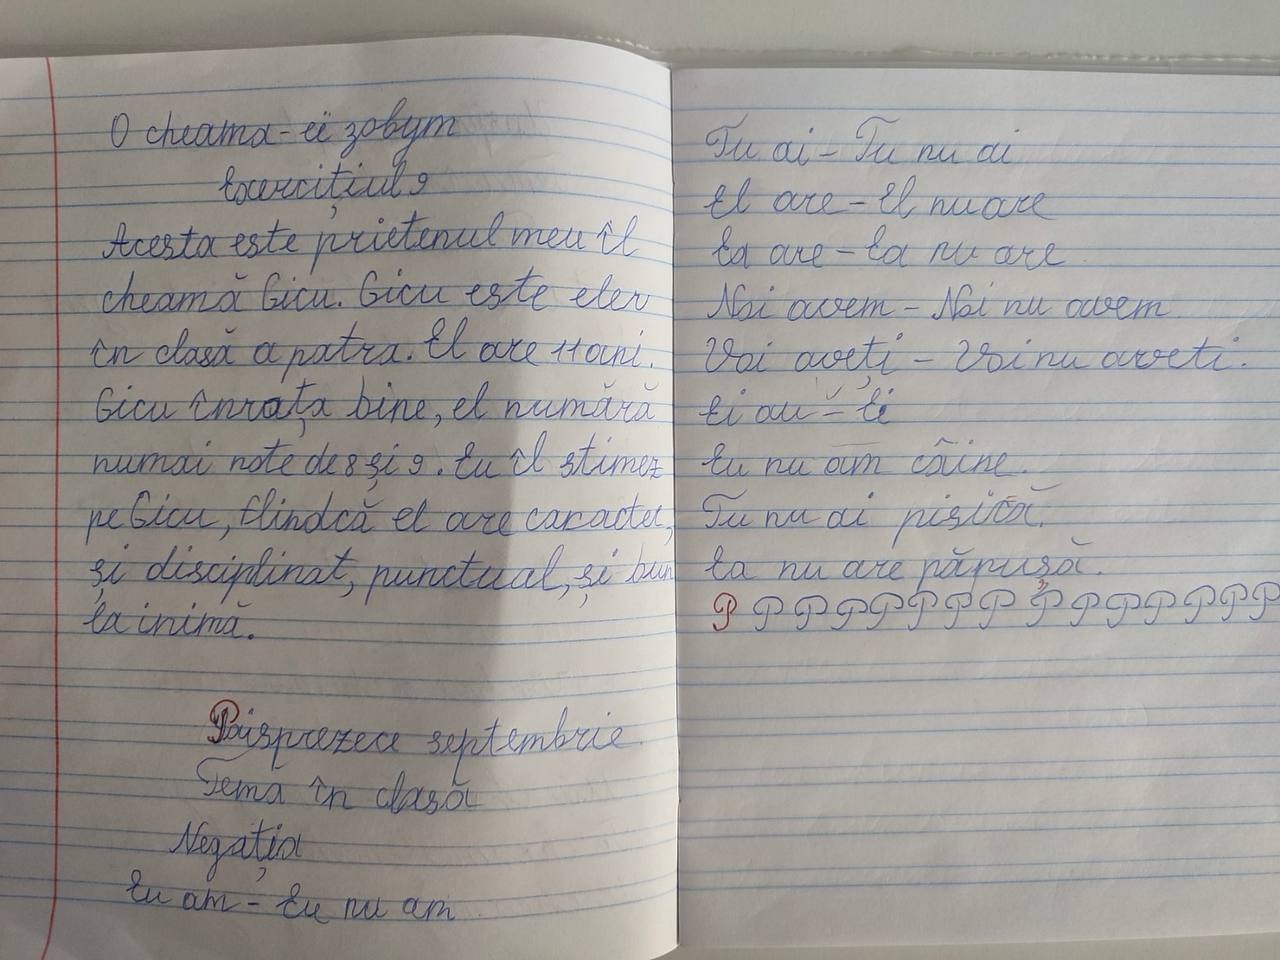 O cheama - eё zobym
Exercițiul 9
Acesta este prietenul meu îl
cheamă Gicu. Gicu este elev
în clasă a patra. El are 11 ani.
Gicu învața bine, el numără
numai note de 8 și 9. Eu îl stimez
pe Gicu, flindcă el are caracter,
și disciplinat, punctual, și bun
la inimă.
Paisprezece septembrie.
Temă în clasă
Negația
Eu am - Eu nu am
Tu ai - Tu nu ai
El are - El nu are
Ea are - Ea nu are
Noi avem - Noi nu avem
Voi aveți - Voi nu aveti.
Ei au - Ei
Eu nu am câine.
Tu nu ai pisică.
Ea nu are păpușă.
P P P P P P P P P P P P P P